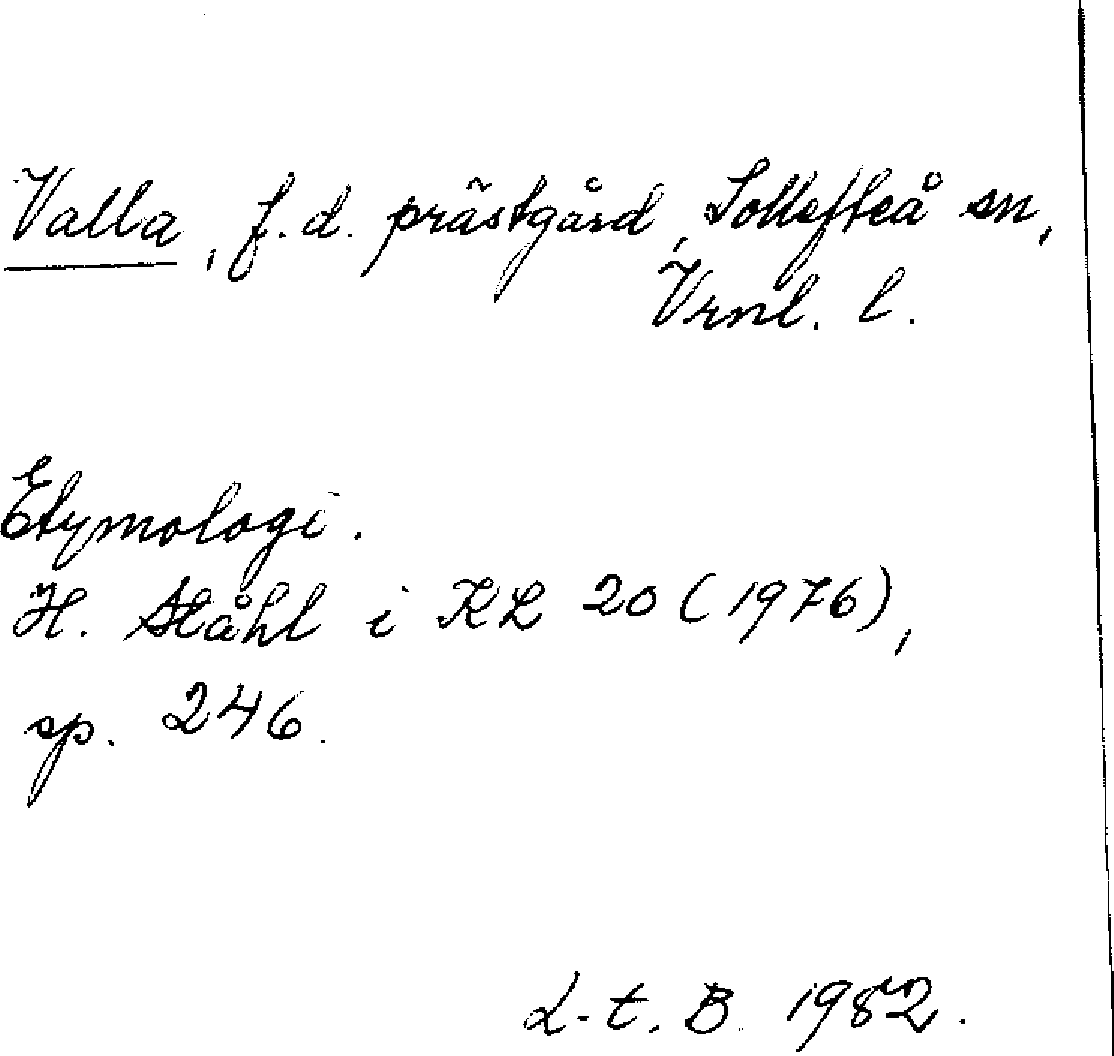 Valla, f.d. prästgård, Sollefteå sn,
Vrnl. l.
Etymologi.
H. Ståhl i KL 20 (1976),
sp. 246.
L-t. B. 1982.